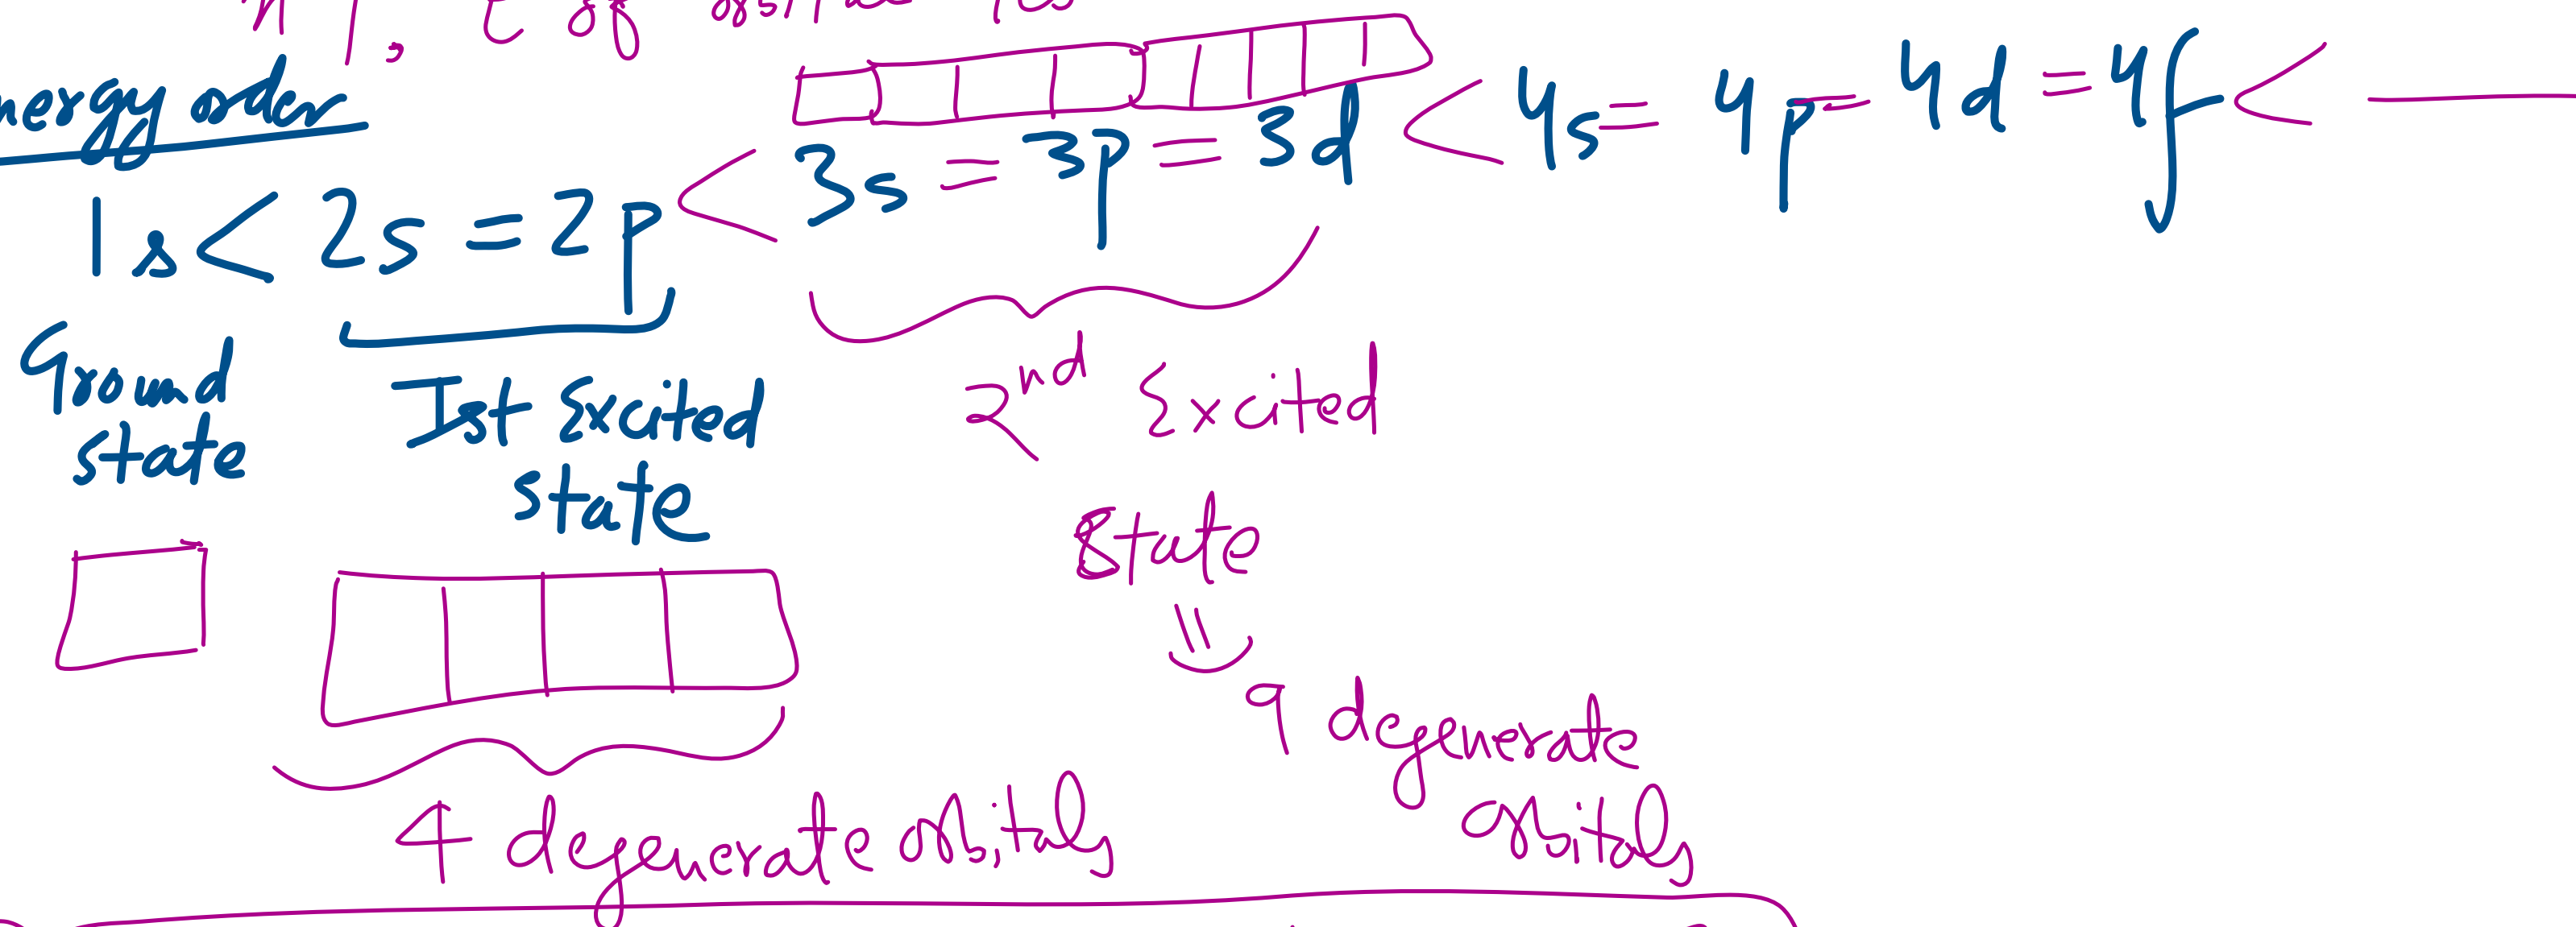 energy order
1s < 2s = 2p < 3s = 3p = 3d < 4s = 4p = 4d = 4f <
Ground state
Ist Excited state
2nd Excited State
4 degenerate orbitals
9 degenerate orbitals